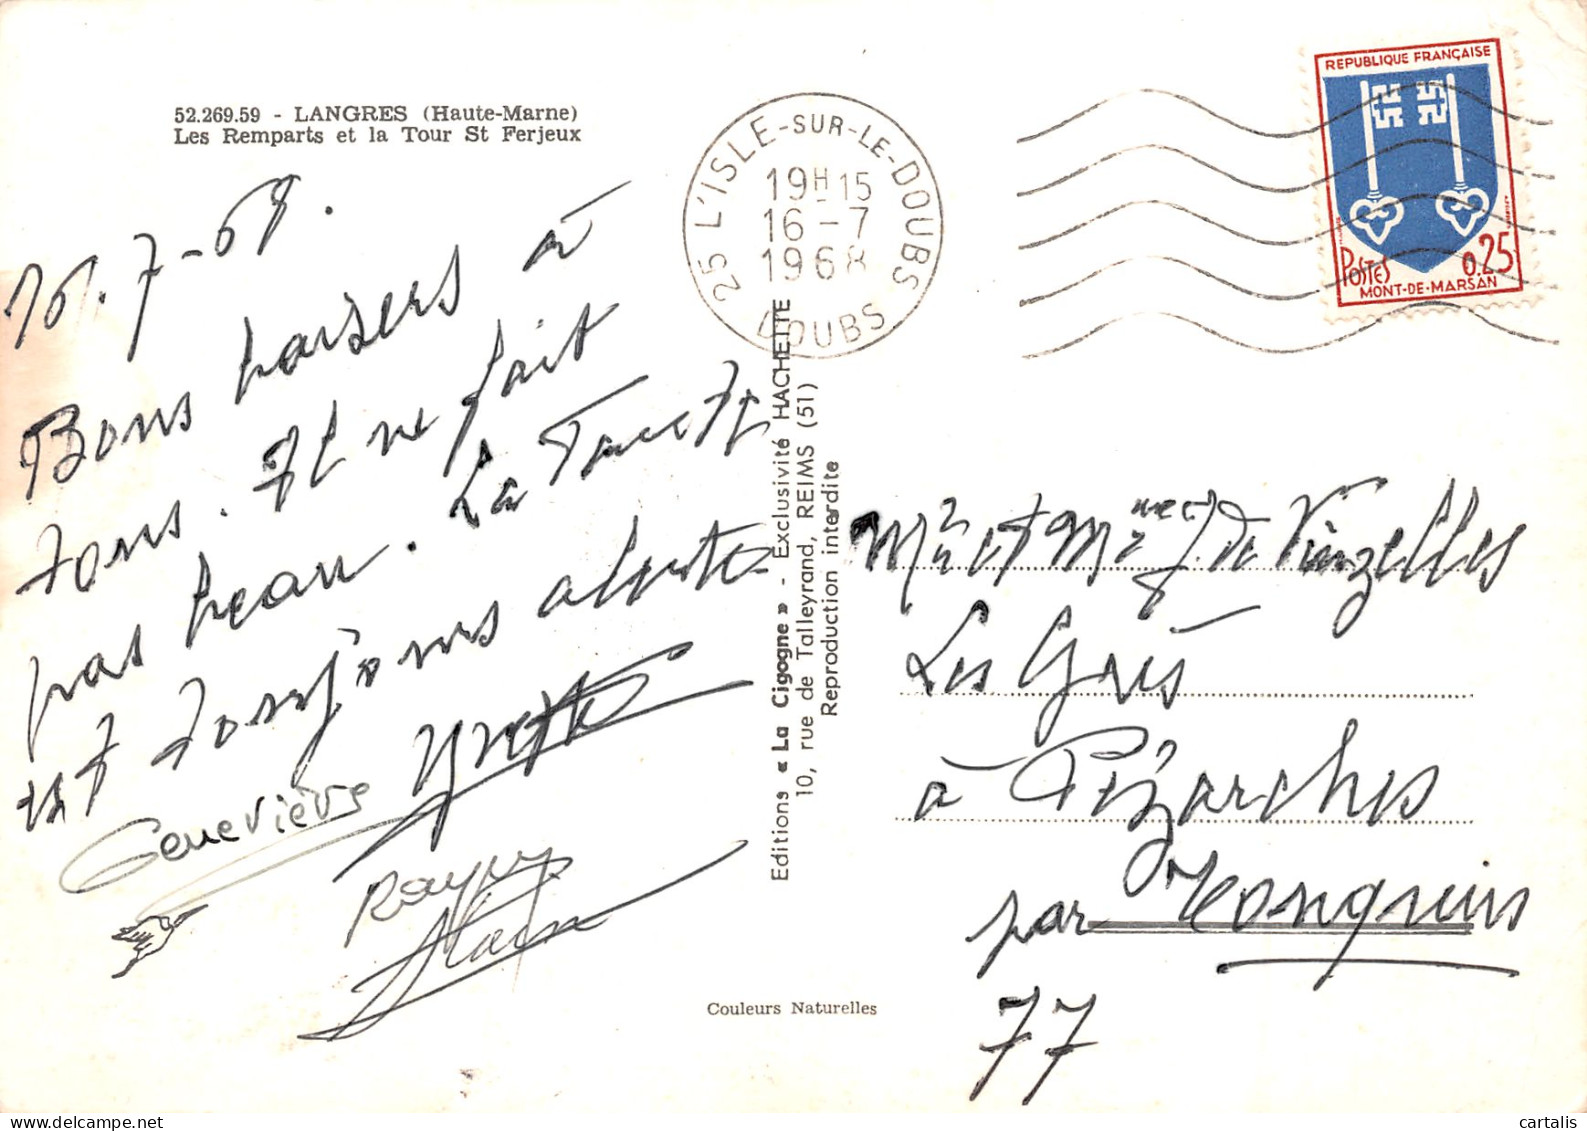 52.269.59 - LANGRES (Haute-Marne)
Les Remparts et la Tour St Ferjeux
16.7-68.
Bons baisers à
tous. Il ne fait
pas beau. La
est toujours alerte
Yvette
Geneviève
25 L'ISLE-SUR-LE-DOUBS
19H15
16-7
1968
DOUBS
REPUBLIQUE FRANÇAISE
POSTES
0.25
MONT-DE-MARSAN
Editions « La Cigogne » - Exclusivité HACHETTE
10, rue de Talleyrand, REIMS (51)
Reproduction interdite
Mr et Mme J. de Vinzelles
Les Grès
à Pézarches
par
77
Couleurs Naturelles
cartalis